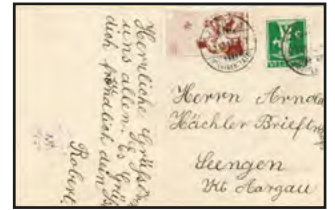 Herzliche Grüße von
uns allen. Es Grüßt
dich freundlich dein
Robert
Herrn Arnold
Hächler Brieftr
Seengen
Kt Aargau